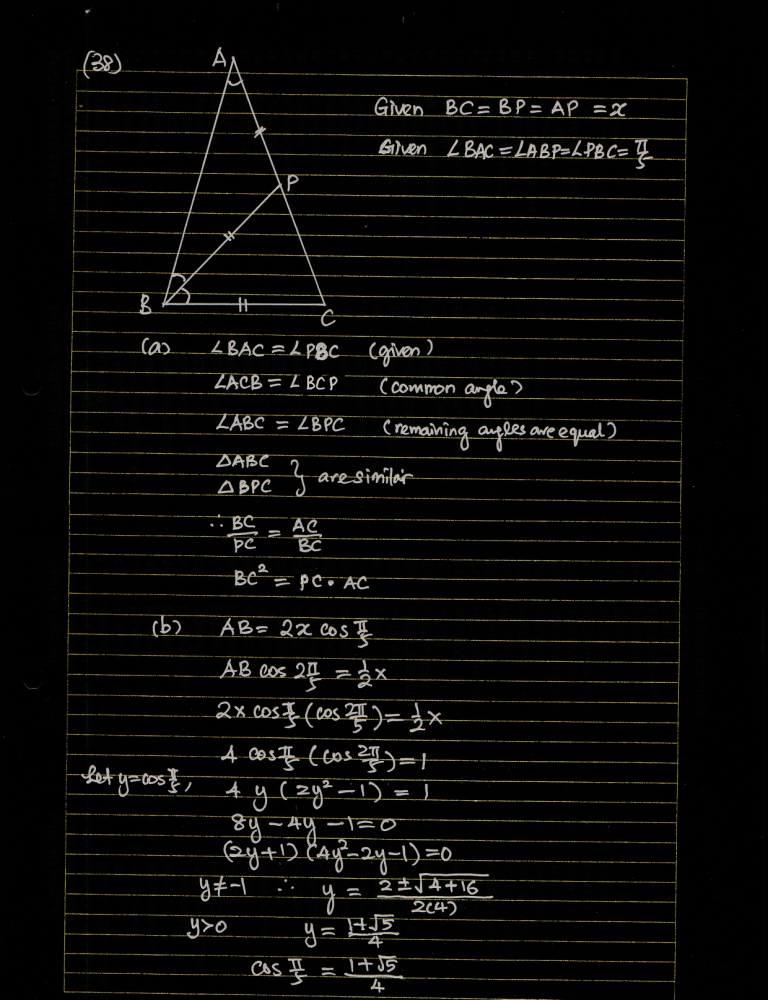 (38)
A
P
B
C
Given BC = BP = AP = x
Given ∠BAC = ∠ABP = ∠PBC = π/5
(a) ∠BAC = ∠PBC (given)
∠ACB = ∠BCP (common angle)
∠ABC = ∠BPC (remaining angles are equal)
△ABC
△BPC } are similar
∴ BC/PC = AC/BC
BC² = PC · AC
(b) AB = 2x cos π/5
AB cos 2π/5 = ½x
2x cos π/5 (cos 2π/5) = ½x
4 cos π/5 (cos 2π/5) = 1
Let y = cos π/5, 4y (2y² - 1) = 1
8y - 4y - 1 = 0
(2y+1) (4y² - 2y - 1) = 0
y ≠ -1 ∴ y = (2 ± √(4+16))/(2(4))
y > 0 y = (1+√5)/4
cos π/5 = (1+√5)/4